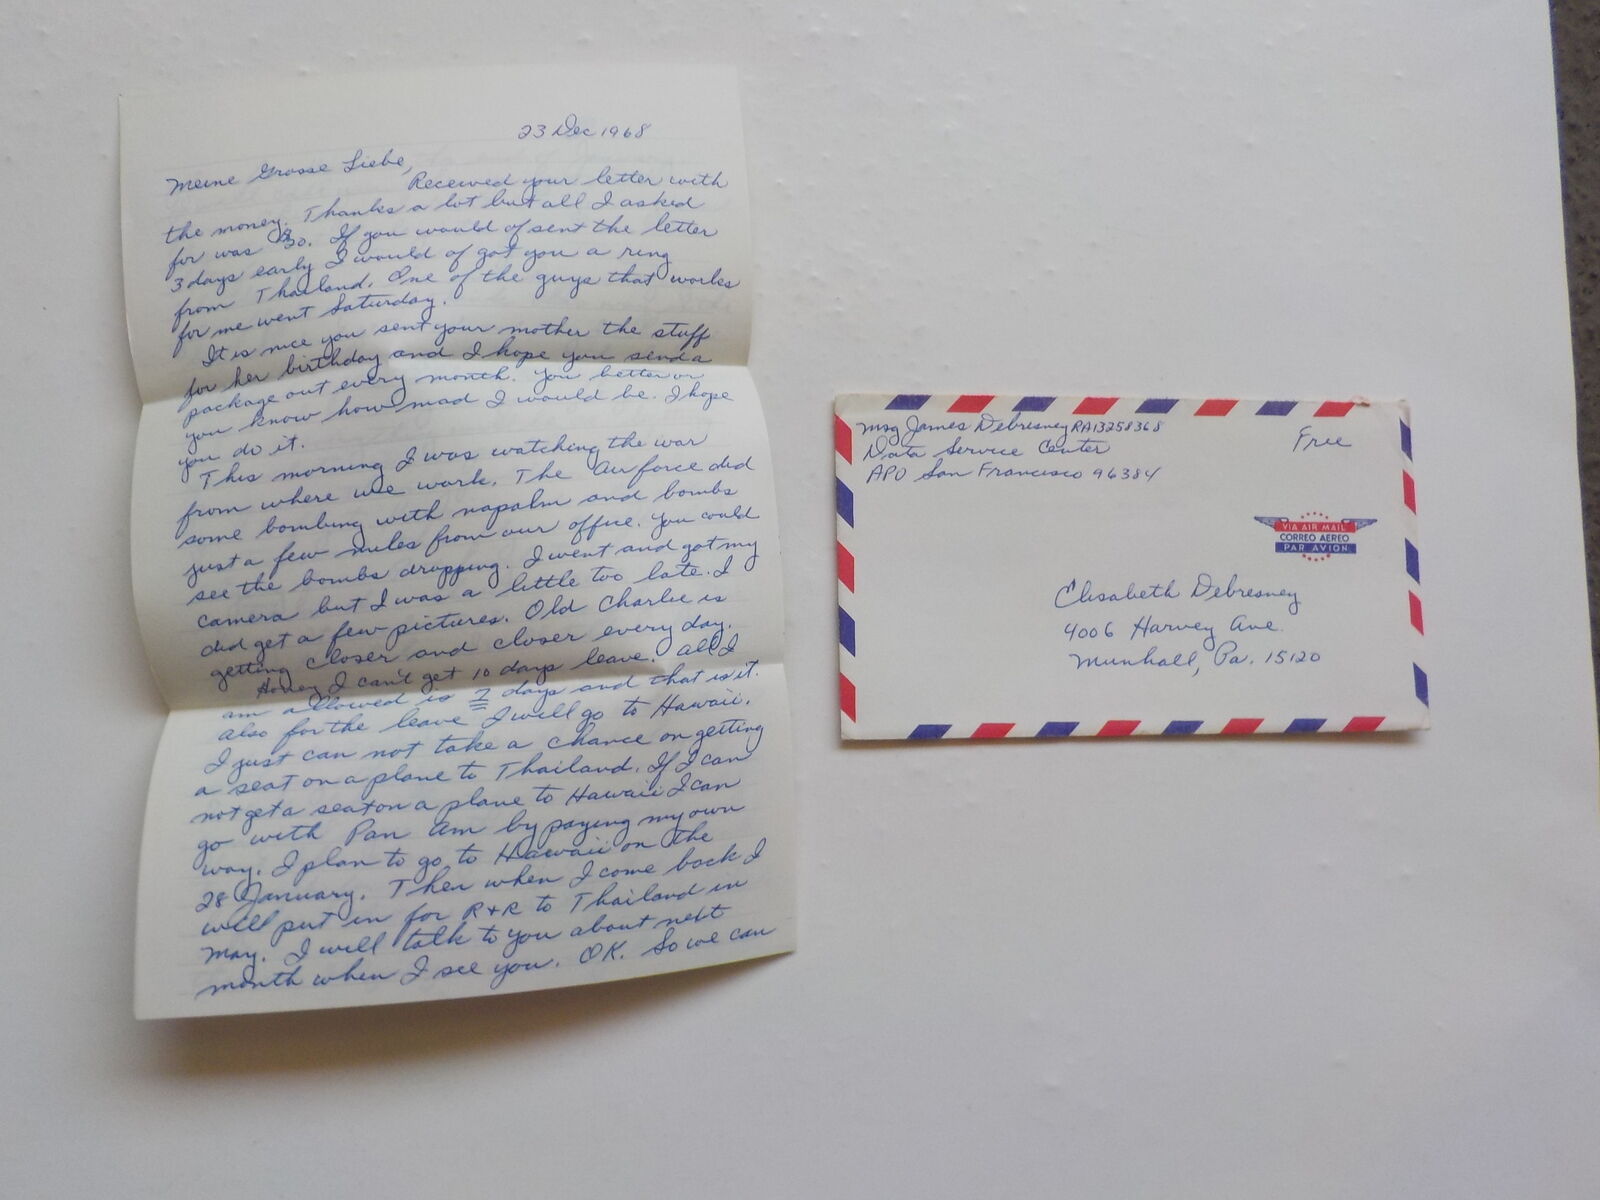 23 Dec 1968
Meine Grosse Liebe,
Received your letter with
the money. Thanks a lot but all I asked
for was $30. If you would of sent the letter
3 days early I would of got you a ring
from Thailand. One of the guys that works
for me went Saturday.
It is nice you sent your mother the stuff
for her birthday and I hope you send a
package out every month. You better or
you know how mad I would be. I hope
you do it.
This morning I was watching the war
from where we work. The Air force did
some bombing with napalm and bombs
just a few miles from our office. You could
see the bombs dropping. I went and got my
camera but I was a little too late. I
did get a few pictures. Old Charlie is
getting closer and closer every day.
Honey I can't get 10 days leave. All I
am allowed is 7 days and that is it.
Also for the leave I will go to Hawaii.
I just can not take a chance on getting
a seat on a plane to Thailand. If I can
not get a seat on a plane to Hawaii I can
go with Pan Am by paying my own
way. I plan to go to Hawaii on the
28 January. Then when I come back I
will put in for R+R to Thailand in
May. I will talk to you about next
month when I see you. OK. So we can
Msg James Debresney RA13258368
Data Service Center
APO San Francisco 96384
Free
VIA AIR MAIL
CORREO AEREO
PAR AVION
Elisabeth Debresney
4006 Harvey Ave.
Munhall, Pa. 15120